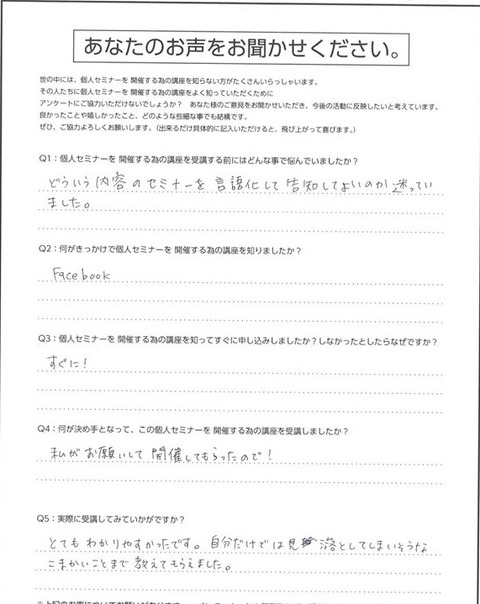 あなたのお声をお聞かせください。
世の中には、個人セミナーを 開催する為の講座を知らない方がたくさんいらっしゃいます。
その人たちに個人セミナーを 開催する為の講座をよく知っていただくために
アンケートにご協力いただけないでしょうか? あなた様のご意見をお聞かせいただき、今後の活動に反映したいと考えています。
良かったことや嬉しかったこと、どのような些細な事でも結構です。
ぜひ、ご協力よろしくお願いします。(出来るだけ具体的に記入いただけると、飛び上がって喜びます。)
Q1:個人セミナーを 開催する為の講座を受講する前にはどんな事で悩んでいましたか?
どういう内容のセミナーを言語化して告知してよいのか迷ってい
ました。
Q2:何がきっかけで個人セミナーを 開催する為の講座を知りましたか?
Facebook
Q3:個人セミナーを 開催する為の講座を知ってすぐに申し込みしましたか?しなかったとしたらなぜですか?
すぐに!
Q4:何が決め手となって、この個人セミナーを 開催する為の講座を受講しましたか?
私がお願いして開催してもらったので!
Q5:実際に受講してみていかがですか?
とてもわかりやすかったです。自分だけでは見落としてしまいそうな
こまかいことまで教えてもらえました。